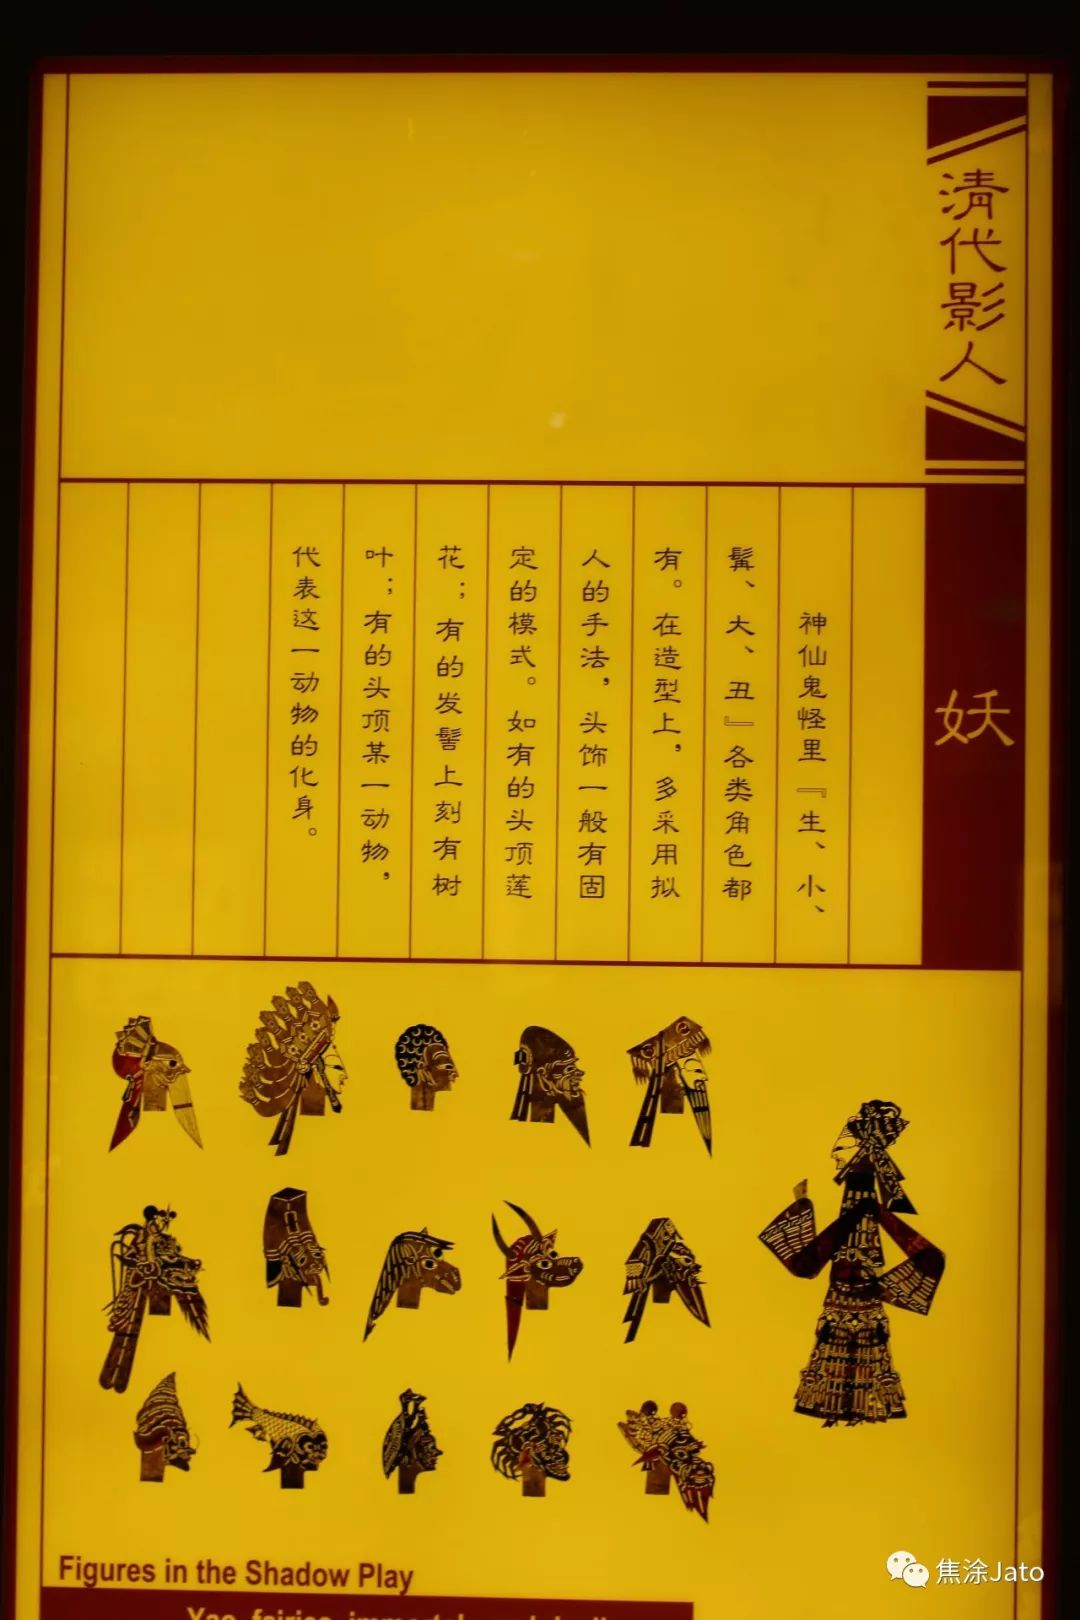 清代影人
妖
神仙鬼怪里『生、小、
髯、大、丑』各类角色都
有。在造型上，多采用拟
人的手法，头饰一般有固
定的模式。如有的头顶莲
花；有的发髻上刻有树
叶；有的头顶某一动物，
代表这一动物的化身。
Figures in the Shadow Play
焦涂Jato